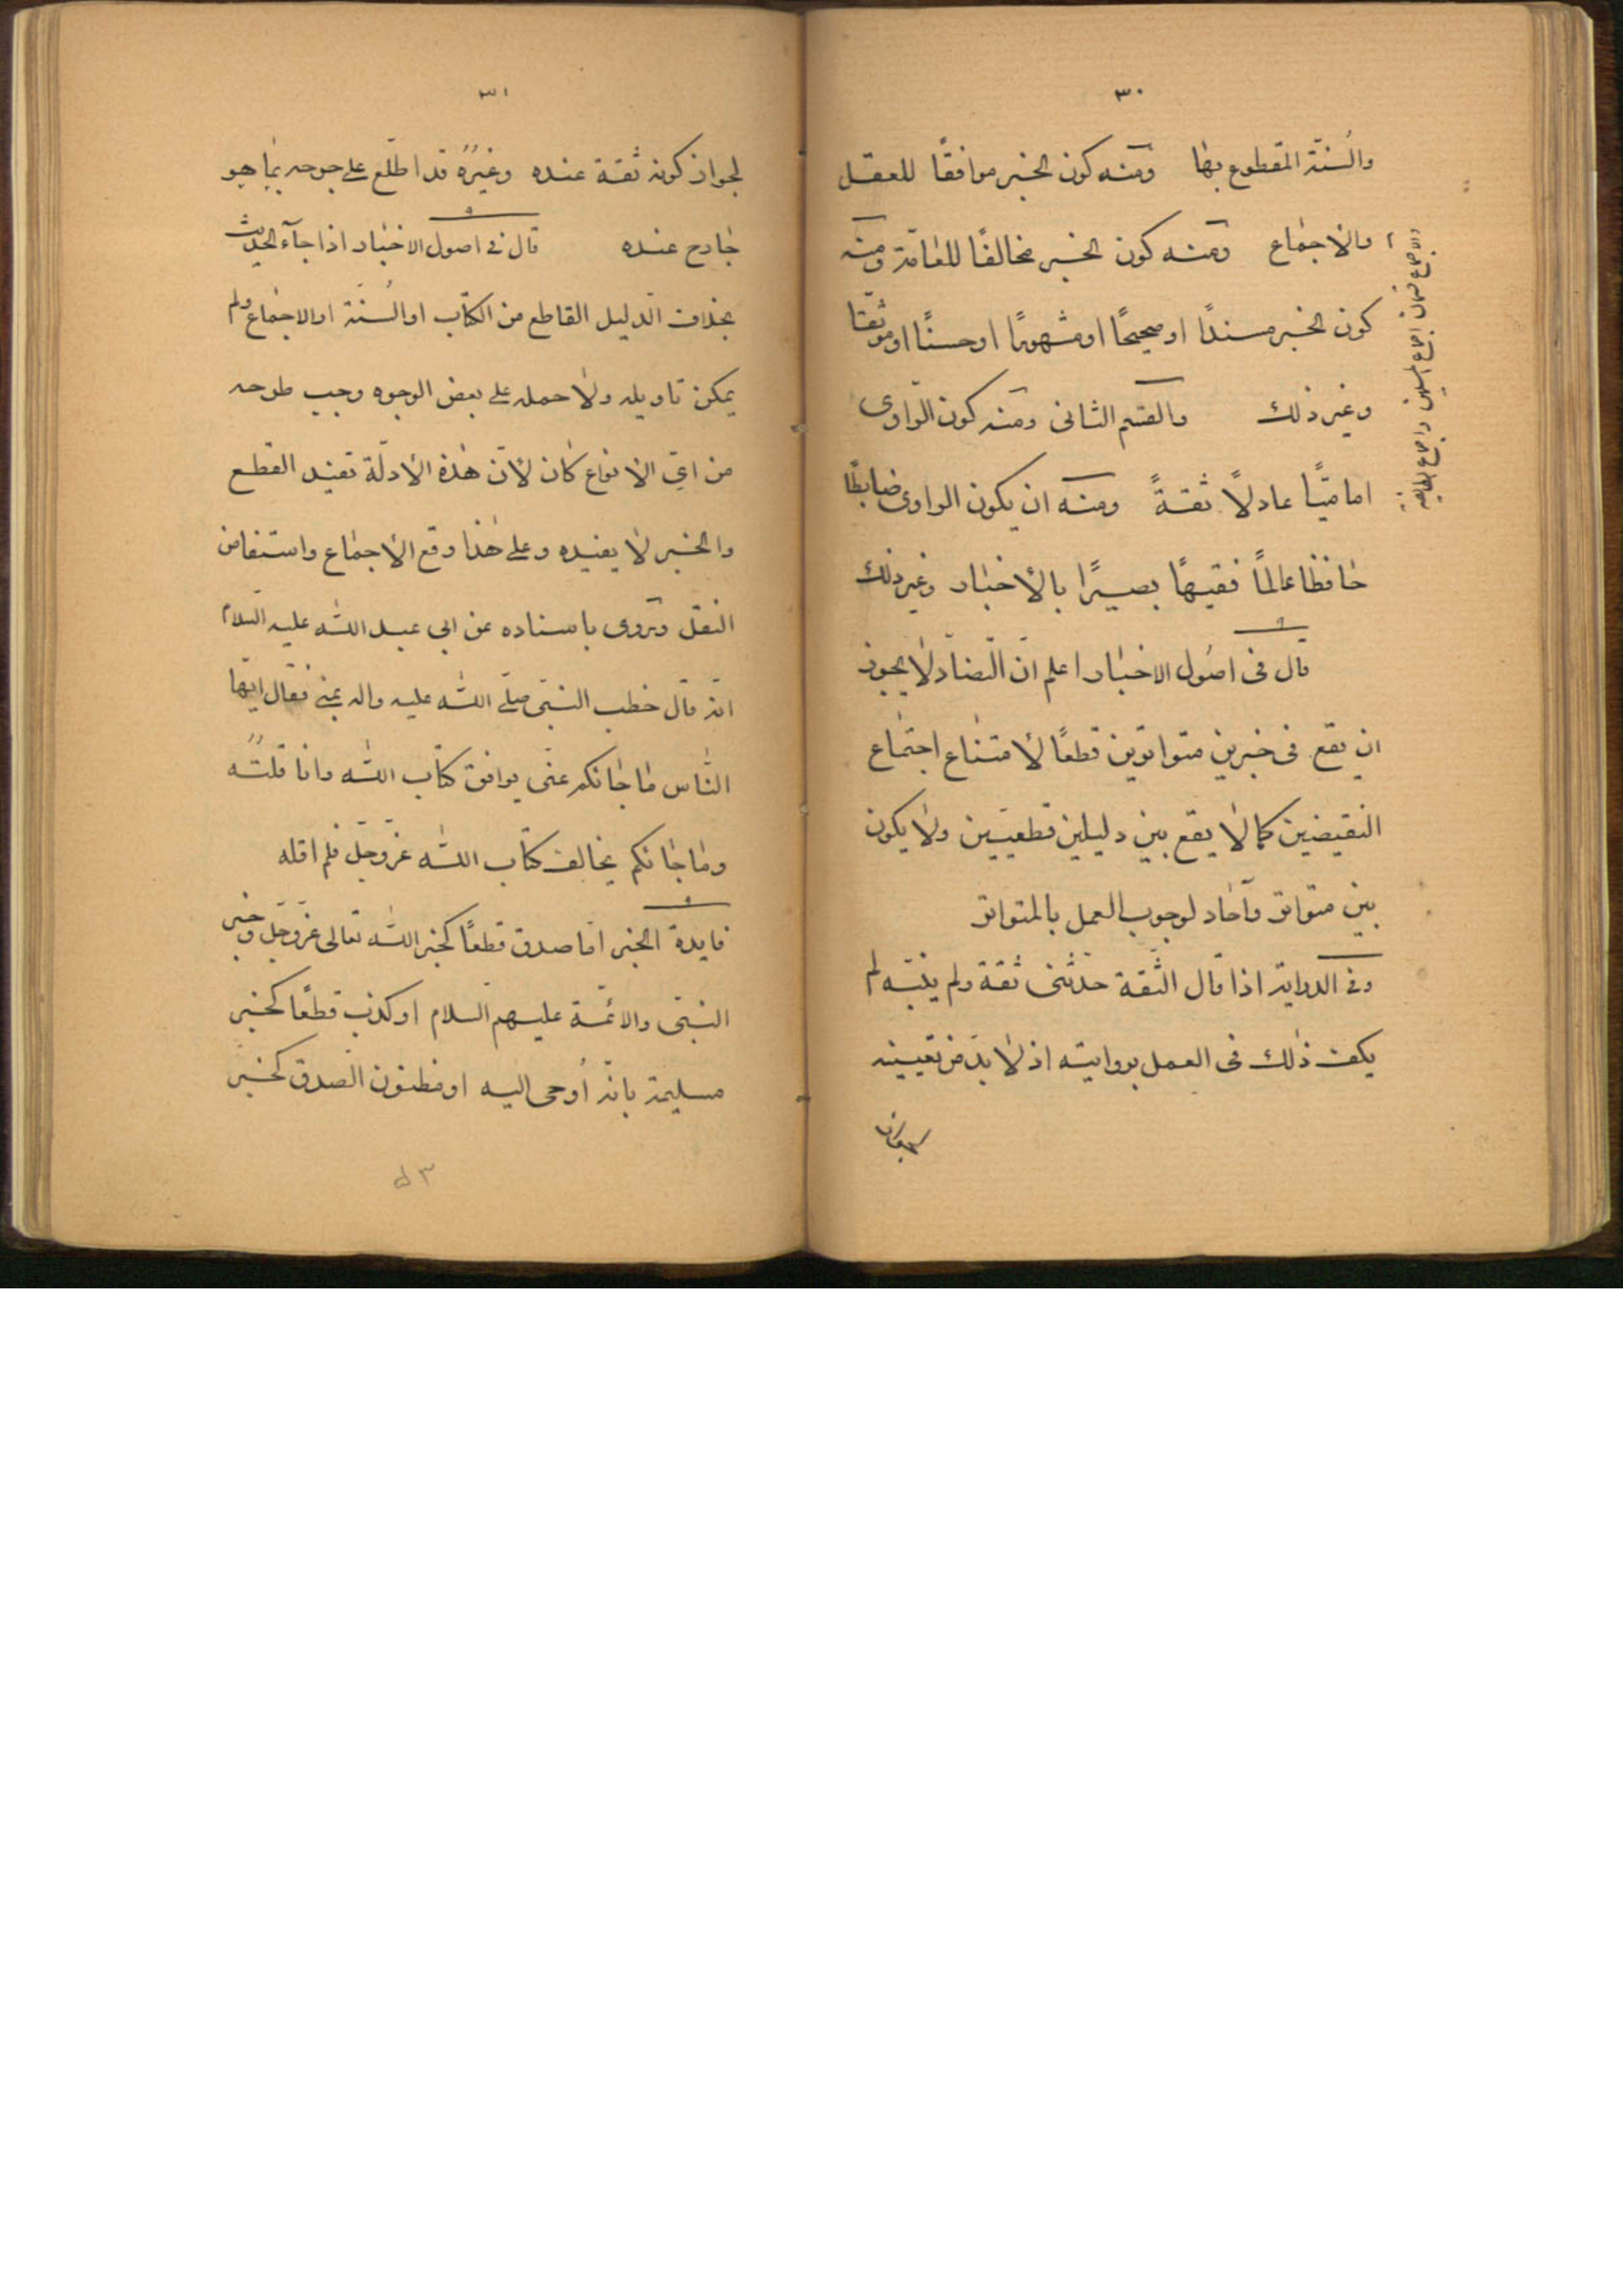 ٣٠
والسنّة المقطوع بها ومنه كون الخبر موافقًا للعقل
والاجماع ومنه كون الخبر مخالفًا للعامّة ومنه
كون الخبر مسندًا او صحيحًا او مشهورًا او حسنًا او موثقا
وغير ذلك والقسم الثانى ومنه كون الراوى
اماميًّا عادلاً ثقةً ومنه ان يكون الراوى ضابطًا
حافظا عالماً فقيهًا بصيرًا بالأخبار وغير ذلك
قال فى اصول الاخبار اعلم انّ التضادّ لا يجوز
ان يقع فى خبرين متواترين قطعًا لأمتناع اجتماع
النقيضين كما لا يقع بين دليلين قطعيّين ولا يكون
بين متواتر وآحاد لوجوب العمل بالمتواتر
وفى الدراية اذا قال الثّقة حدّثنى ثقة ولم يبيّنه لم
يكف ذلك فى العمل بروايته اذ لا بدّ من تعيينه
والاجماع قسمان اجماع المسلمين واجماع الطايفة
٣١
لجواز كونه ثقة عنده وغيره قد اطّلع على جرحه بما هو
جارح عنده قال فى اصول الاخبار اذا جآء الحديث
بخلاف الدليل القاطع من الكتاب او السنّة او الاجماع ولم
يمكن تاويله ولا حمله على بعض الوجوه وجب طرحه
من اىّ الانواع كان لأنّ هذه الأدلّة تفيد القطع
والخبر لا يفيده وعلى هذا وقع الأجماع واستفاض
النقل وتروى باسناده عن ابى عبد الله عليه السّلام
انّه قال خطب النبىّ صلّى الله عليه واله بمنى فقال ايّها
النّاس ما جائكم عنّى يوافق كتاب الله فانا قلته
وما جائكم يخالف كتاب الله عزّ وجلّ فلم اقله
فايدة الخبر امّا صدق قطعًا كخبر الله تعالى عزّ وجلّ وخبر
النبىّ والائمّة عليهم السلام او كذب قطعًا كخبر
مسليمة بانّه أوحى اليه او مظنون الصّدق كخبر